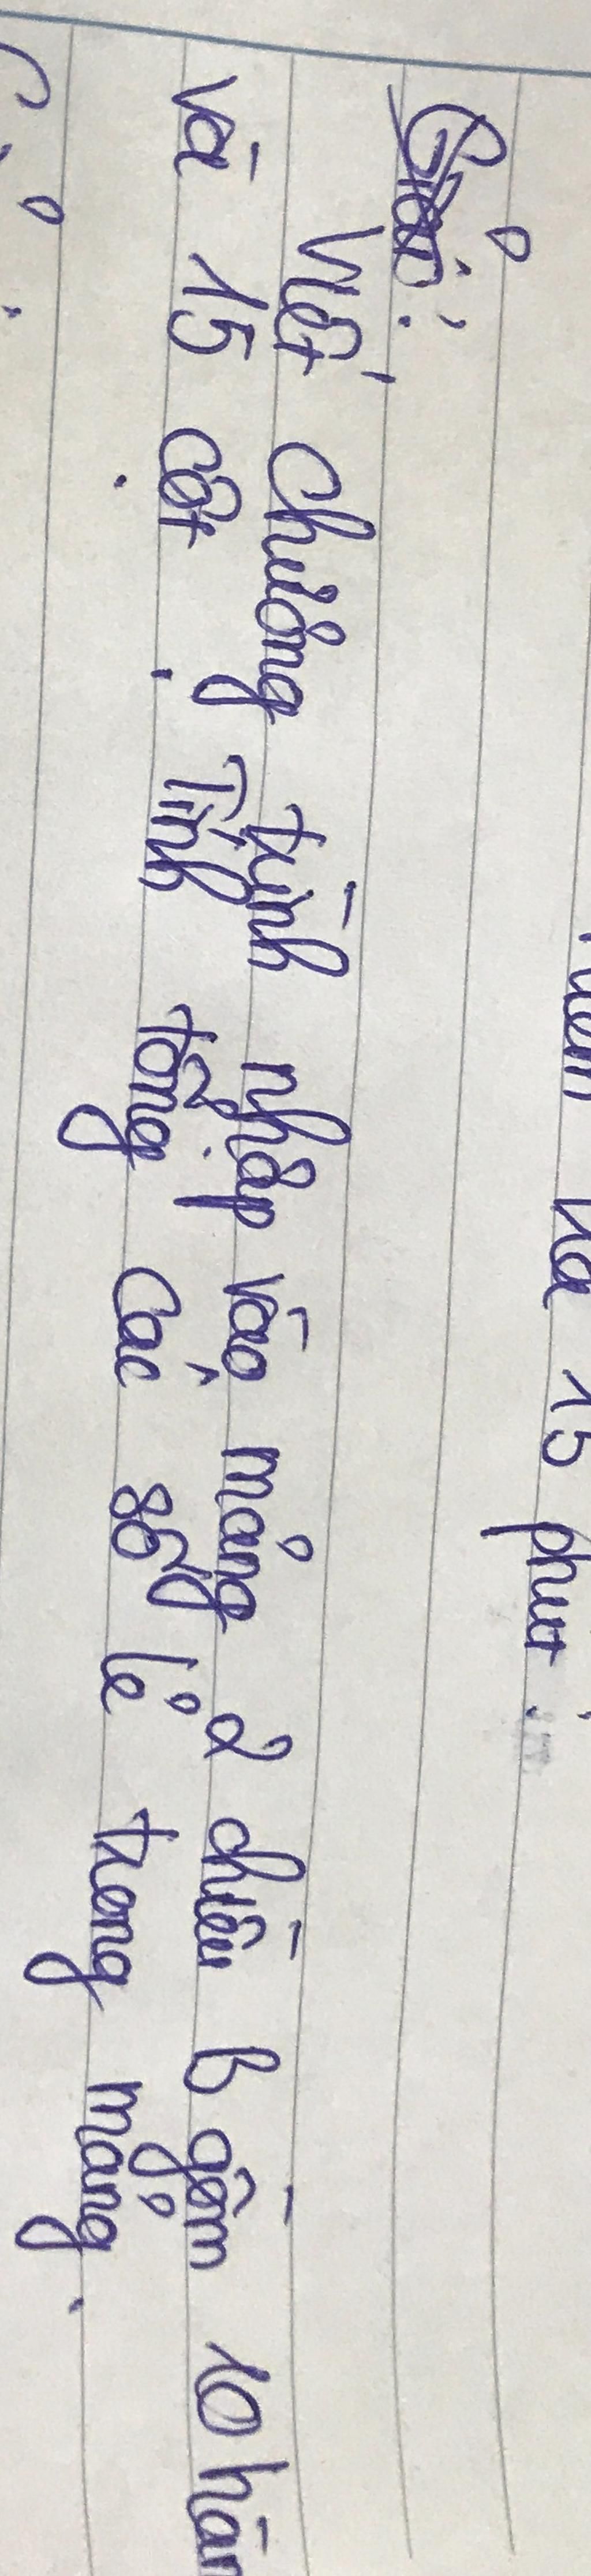 kiểm tra 15 phút.
Giải:
Viết chương trình nhập vào mảng 2 chiều B gồm 10 hàn
và 15 cột. Tính tổng các số lẻ trong mảng.